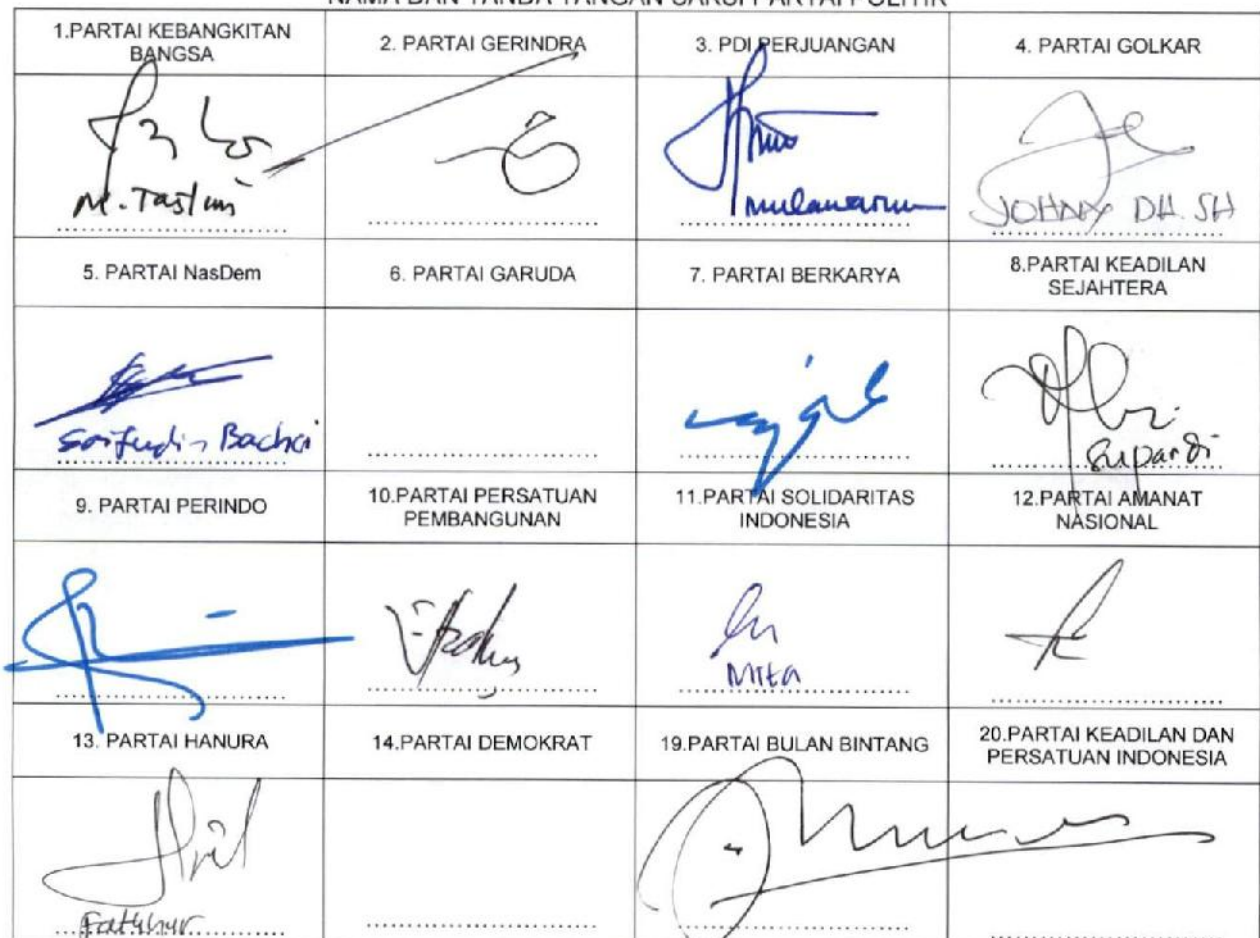 NAMA DAN TANDA TANGAN SAKSI PARTAI POLITIK
1.PARTAI KEBANGKITAN BANGSA
2. PARTAI GERINDRA
3. PDI PERJUANGAN
4. PARTAI GOLKAR
M. Taslim
mulawarman
JOHNY DH. SH
5. PARTAI NasDem
6. PARTAI GARUDA
7. PARTAI BERKARYA
8.PARTAI KEADILAN SEJAHTERA
Saifudin Bachri
Supardi
9. PARTAI PERINDO
10.PARTAI PERSATUAN PEMBANGUNAN
11.PARTAI SOLIDARITAS INDONESIA
12.PARTAI AMANAT NASIONAL
Mita
13. PARTAI HANURA
14.PARTAI DEMOKRAT
19.PARTAI BULAN BINTANG
20.PARTAI KEADILAN DAN PERSATUAN INDONESIA
Fathur